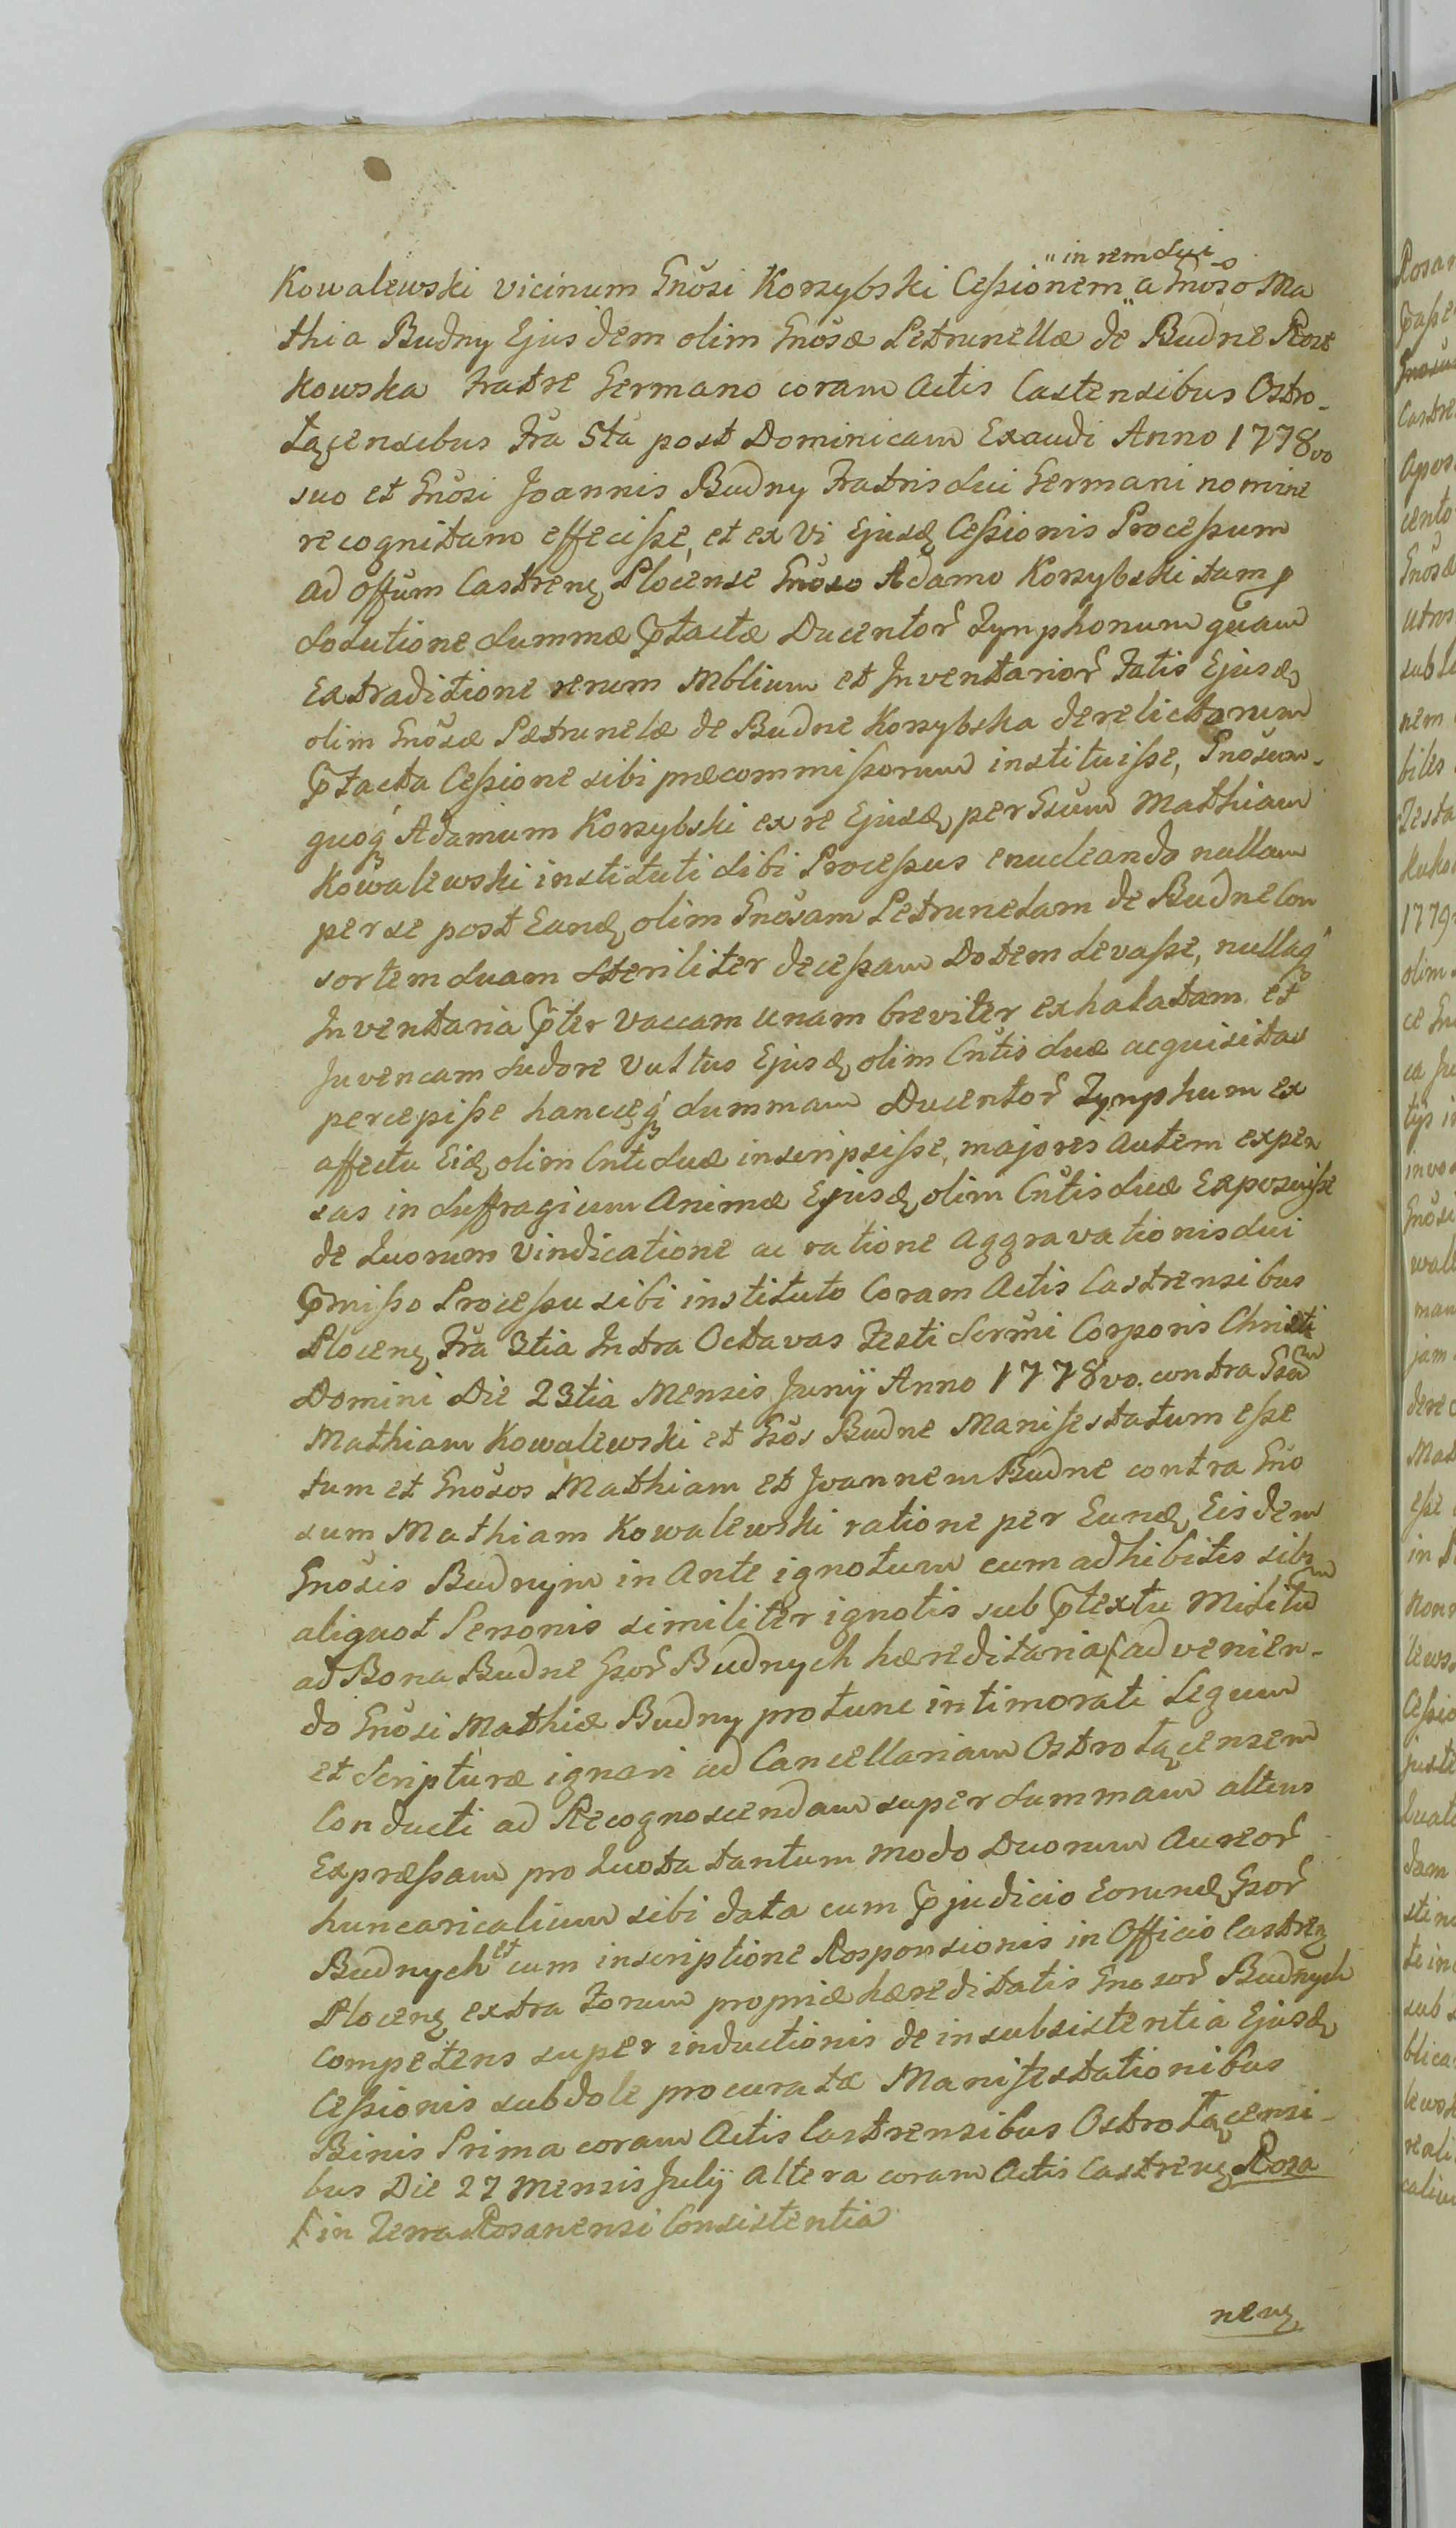 "in rem sui
Kowalewski vicinum Gnŏsi Korzybski Ceſsionem "a Gnŏso Ma
thia Budny Ejusdem olim Gnŏsæ Petrunellæ de Budne
kowska Fratre Germano coram Actis Castrensibus Ostro-
łęcensibus Fră 5tă post Dominicam Exaudi Anno 1778vo
suo et Gnŏsi Joannis Budny Fratris sui Germani nomine
recognitam effeciſse, et ex vi Ejusđ Ceſsionis Proceſsum
ad Offŭm Castrenȝ Plocense Gnŏso Adamo Korzybski tam p
solutione summæ p̄tactæ Ducentor̆ Tynphonum quam
Extraditione rerum Mblium et Inventarior̆ Fatis Ejusđ
olim Gnŏsæ Petrunelæ de Budne Korzybska derelictarum
p̄tacta Ceſsione sibi præcommiſsorum instituiſse, Gnŏsum-
quoq́ Adamum Korzybski ex re Ejusđ per Gsŭm Mathiam
Kowalewski instituti sibi Proceſsus enucleando nullam
per se post Eanđ olim Gnŏsam Petrunelam de Budne Con
sortem suam steriliter deceſsam Dotem levaſse, nullaq́
Inventaria p̄ter Vaccam unam breviter exhalatam et
Juvencam sudore Vultus Ejusđ olim Cntis suæ acquisitas
percepiſse hancceq́ summam Ducentor̆ Tynphum ex
affectu Eiđ olim Cnti suæ inscripsiſse, majores autem expen
sas in suffragium Animæ Ejusđ olim Cntis suæ Exposuiſse
de Quorum Vindicatione ac ratione Aggravationis sui
p̄miſso Proceſsu sibi instituto Coram Actis Castrensibus
Plocenȝ Fră 3tia Intra Octavas Festi Scrmi Corporis Christi
Domini Die 23tia Mensis Junij Anno 1778vo. contra Gsŭm
Mathiam Kowalewski et Gsŏs Budne Manifestatum eſse
tum et Gnŏsos Mathiam et Joannem Budne contra Gno
sum Mathiam Kowalewski ratione per Eunđ Eisdem
Gnŏsis Budnym in Ante ignotum cum adhibitis sibi
aliquot Personis similiter ignotis sub p̄textu Militum
ad Bona Budne Gsor̆ Budnych hæreditaria ſ advenien-
do Gnŏsi Mathiæ Budny protunc intimorati Legum
et Scripturæ ignari ad Cancellariam Ostrołęcensem
Conducti ad Recognoscendam super summam altius
Expræſsam pro Quota tantum modo Duorum Aureor̆
huncaricalium sibi data cum p̄judicio Eorunđ Gsor̆
Budnych et cum inscriptione Responsionis in Officio Castrenȝ
Plocenȝ extra Forum propriæ hæreditatis Gnosor̆ Budnych
competens super inductionis de insubsistentia Ejusđ
Ceſsionis subdole procuratæ Manifestationibus
Binis Prima coram Actis Castrensibus Ostrołęcensi-
bus Die 27 Mensis Julij Altera coram Actis Castrenȝ Roza
ſ in Terra Rosanensi Consistentia
nenȝ